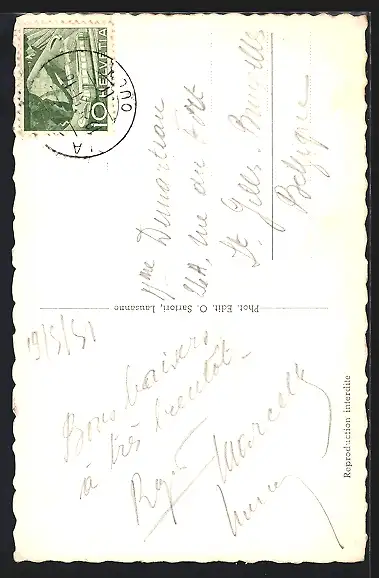 19/5/51
Bons baisers
à très bientôt -
Roger Marcelle
Phot. Edit. O. Sartori, Lausanne
Reproduction interdite
HELVETIA
10
Mme Demarteau
26A, rue du Fort
St Gilles Bruxelles
Belgique